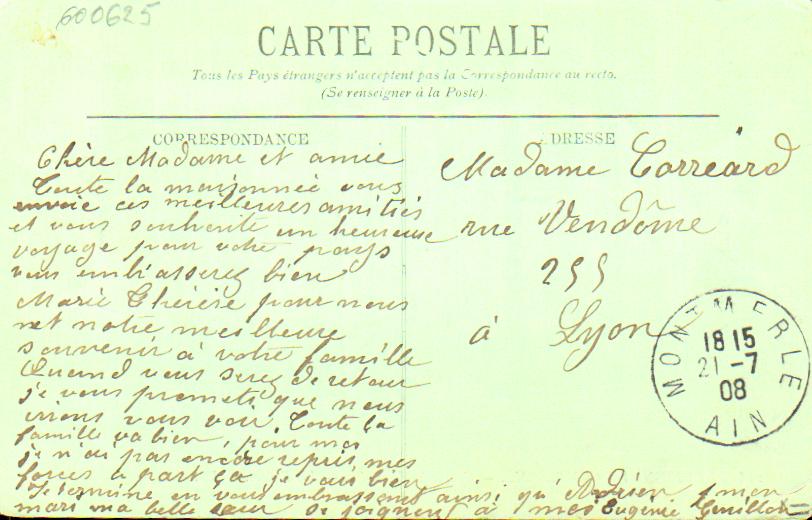 600625
CARTE POSTALE
Tous les Pays étrangers n'acceptent pas la Correspondance au recto.
(Se renseigner à la Poste).
CORRESPONDANCE
Chère Madame et amie
Toute la maisonnée vous
envoie ces meilleures amitiés
et vous souhaite un heureuse
voyage pour votre pays
vous embrasserez bien
Marie Thérèse pour nous
net notre meilleure
souvenir à votre famille
Quand vous serez de retour
je vous promets que nous
irrons vous voir. Toute la
famille va bien, pour moi
je n'ai pas encore repris mes
forces a part ça je vais bien
Je termine en vous embrassant ainsi qu'Adrien, mon
mari ma belle sœur se joignent à moi Eugénie
ADRESSE
Madame Correard
rue Vendôme
255
à Lyon
MONTMERLE
18 15
21 -7
08
AIN